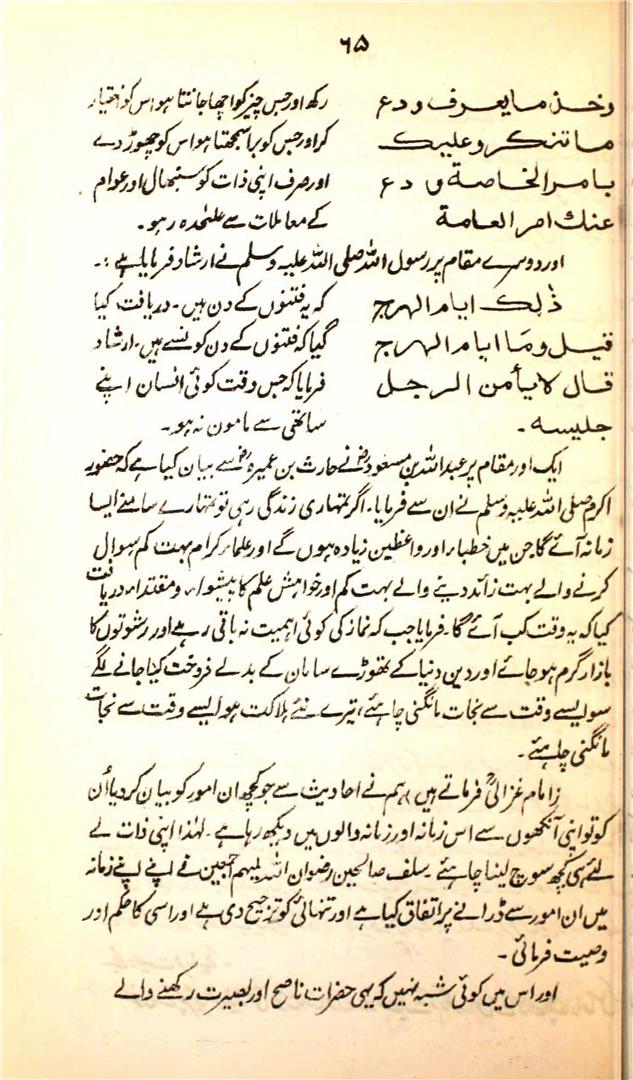 ۶۵
وخذ ما يعرف ودع
ما تنكر وعليك
بامر الخاصة و دع
عنك امر العامة
رکھ اور جس چیز کو اچھا جانتا ہو اس کو اختیار
کر اور جس کو برا سمجھتا ہو اس کو چھوڑ دے
اور صرف اپنی ذات کو سنبھال اور عوام
کے معاملات سے علیٰحدہ رہو۔
اور دوسرے مقام پر رسول اللہ صلی اللہ علیہ وسلم نے ارشاد فرمایا ہے :۔
ذٰلك ايام الهرج
قيل وما ايام الهرج
قال لا يأمن الرجل
جليسه ۔
کہ یہ فتنوں کے دن ہیں۔ دریافت کیا
گیا کہ فتنوں کے دن کونسے ہیں۔ ارشاد
فرمایا کہ جس وقت کوئی انسان اپنے
ساتھی سے مامون نہ ہو۔
ایک اور مقام پر عبداللہ بن مسعودؓ نے حارث بن عمیرہؓ سے بیان کیا ہے کہ حضور
اکرم صلی اللہ علیہ وسلم نے ان سے فرمایا۔ اگر تمہاری زندگی رہی تو تمہارے سامنے ایسا
زمانہ آئے گا جن میں خطباء اور واعظین زیادہ ہوں گے اور علماء کرام بہت کم سوال
کرنے والے بہت زائد دینے والے بہت کم اور خواہش علم کا پیشواء و مقتداء دریافت
کیا کہ یہ وقت کب آئے گا۔ فرمایا جب کہ نماز کی کوئی اہمیت نہ باقی رہے اور رشوتوں کا
بازار گرم ہو جائے اور دین دنیا کے تھوڑے سامان کے بدلے فروخت کیا جانے لگے
سو ایسے وقت سے نجات مانگنی چاہئے، تیرے لئے ہلاکت ہو ایسے وقت سے نجات
مانگنی چاہئے۔
(امام غزالیؒ فرماتے ہیں) ہم نے احادیث سے جو کچھ ان امور کو بیان کر دیا اُن
کو تو اپنی آنکھوں سے اس زمانہ اور زمانہ والوں میں دیکھ رہا ہے۔ لہٰذا اپنی ذات کے
لئے ہی کچھ سوچ لینا چاہئے۔ سلف صالحین رضوان اللہ علیہم اجمعین نے اپنے اپنے زمانہ
میں ان امور سے ڈرانے پر اتفاق کیا ہے اور تنہائی کو ترجیح دی ہے اور اسی کا حکم اور
وصیت فرمائی۔
اور اس میں کوئی شبہ نہیں کہ یہی حضرات ناصح اور بصیرت رکھنے والے